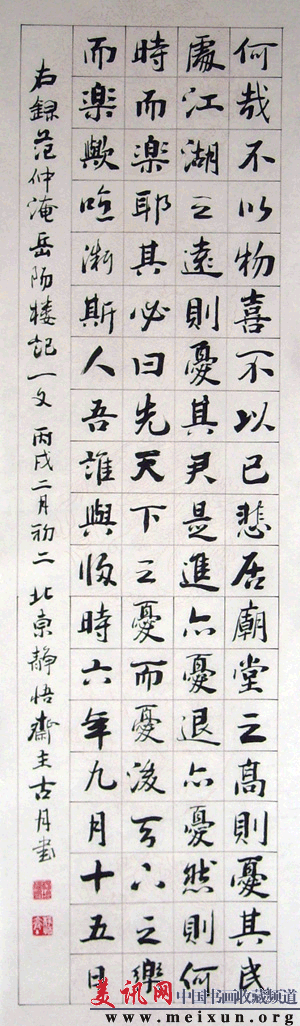 何哉不以物喜不以己悲居廟堂之高則憂其民
處江湖之遠則憂其君是進亦憂退亦憂然則何
時而樂耶其必曰先天下之憂而憂後天下之樂
而樂歟噫微斯人吾誰與歸時六年九月十五日
右録范仲淹岳阳楼記一文 丙戌二月初二 北京静悟齋主古月書
美讯网 中国书画收藏频道
www.meixun.org